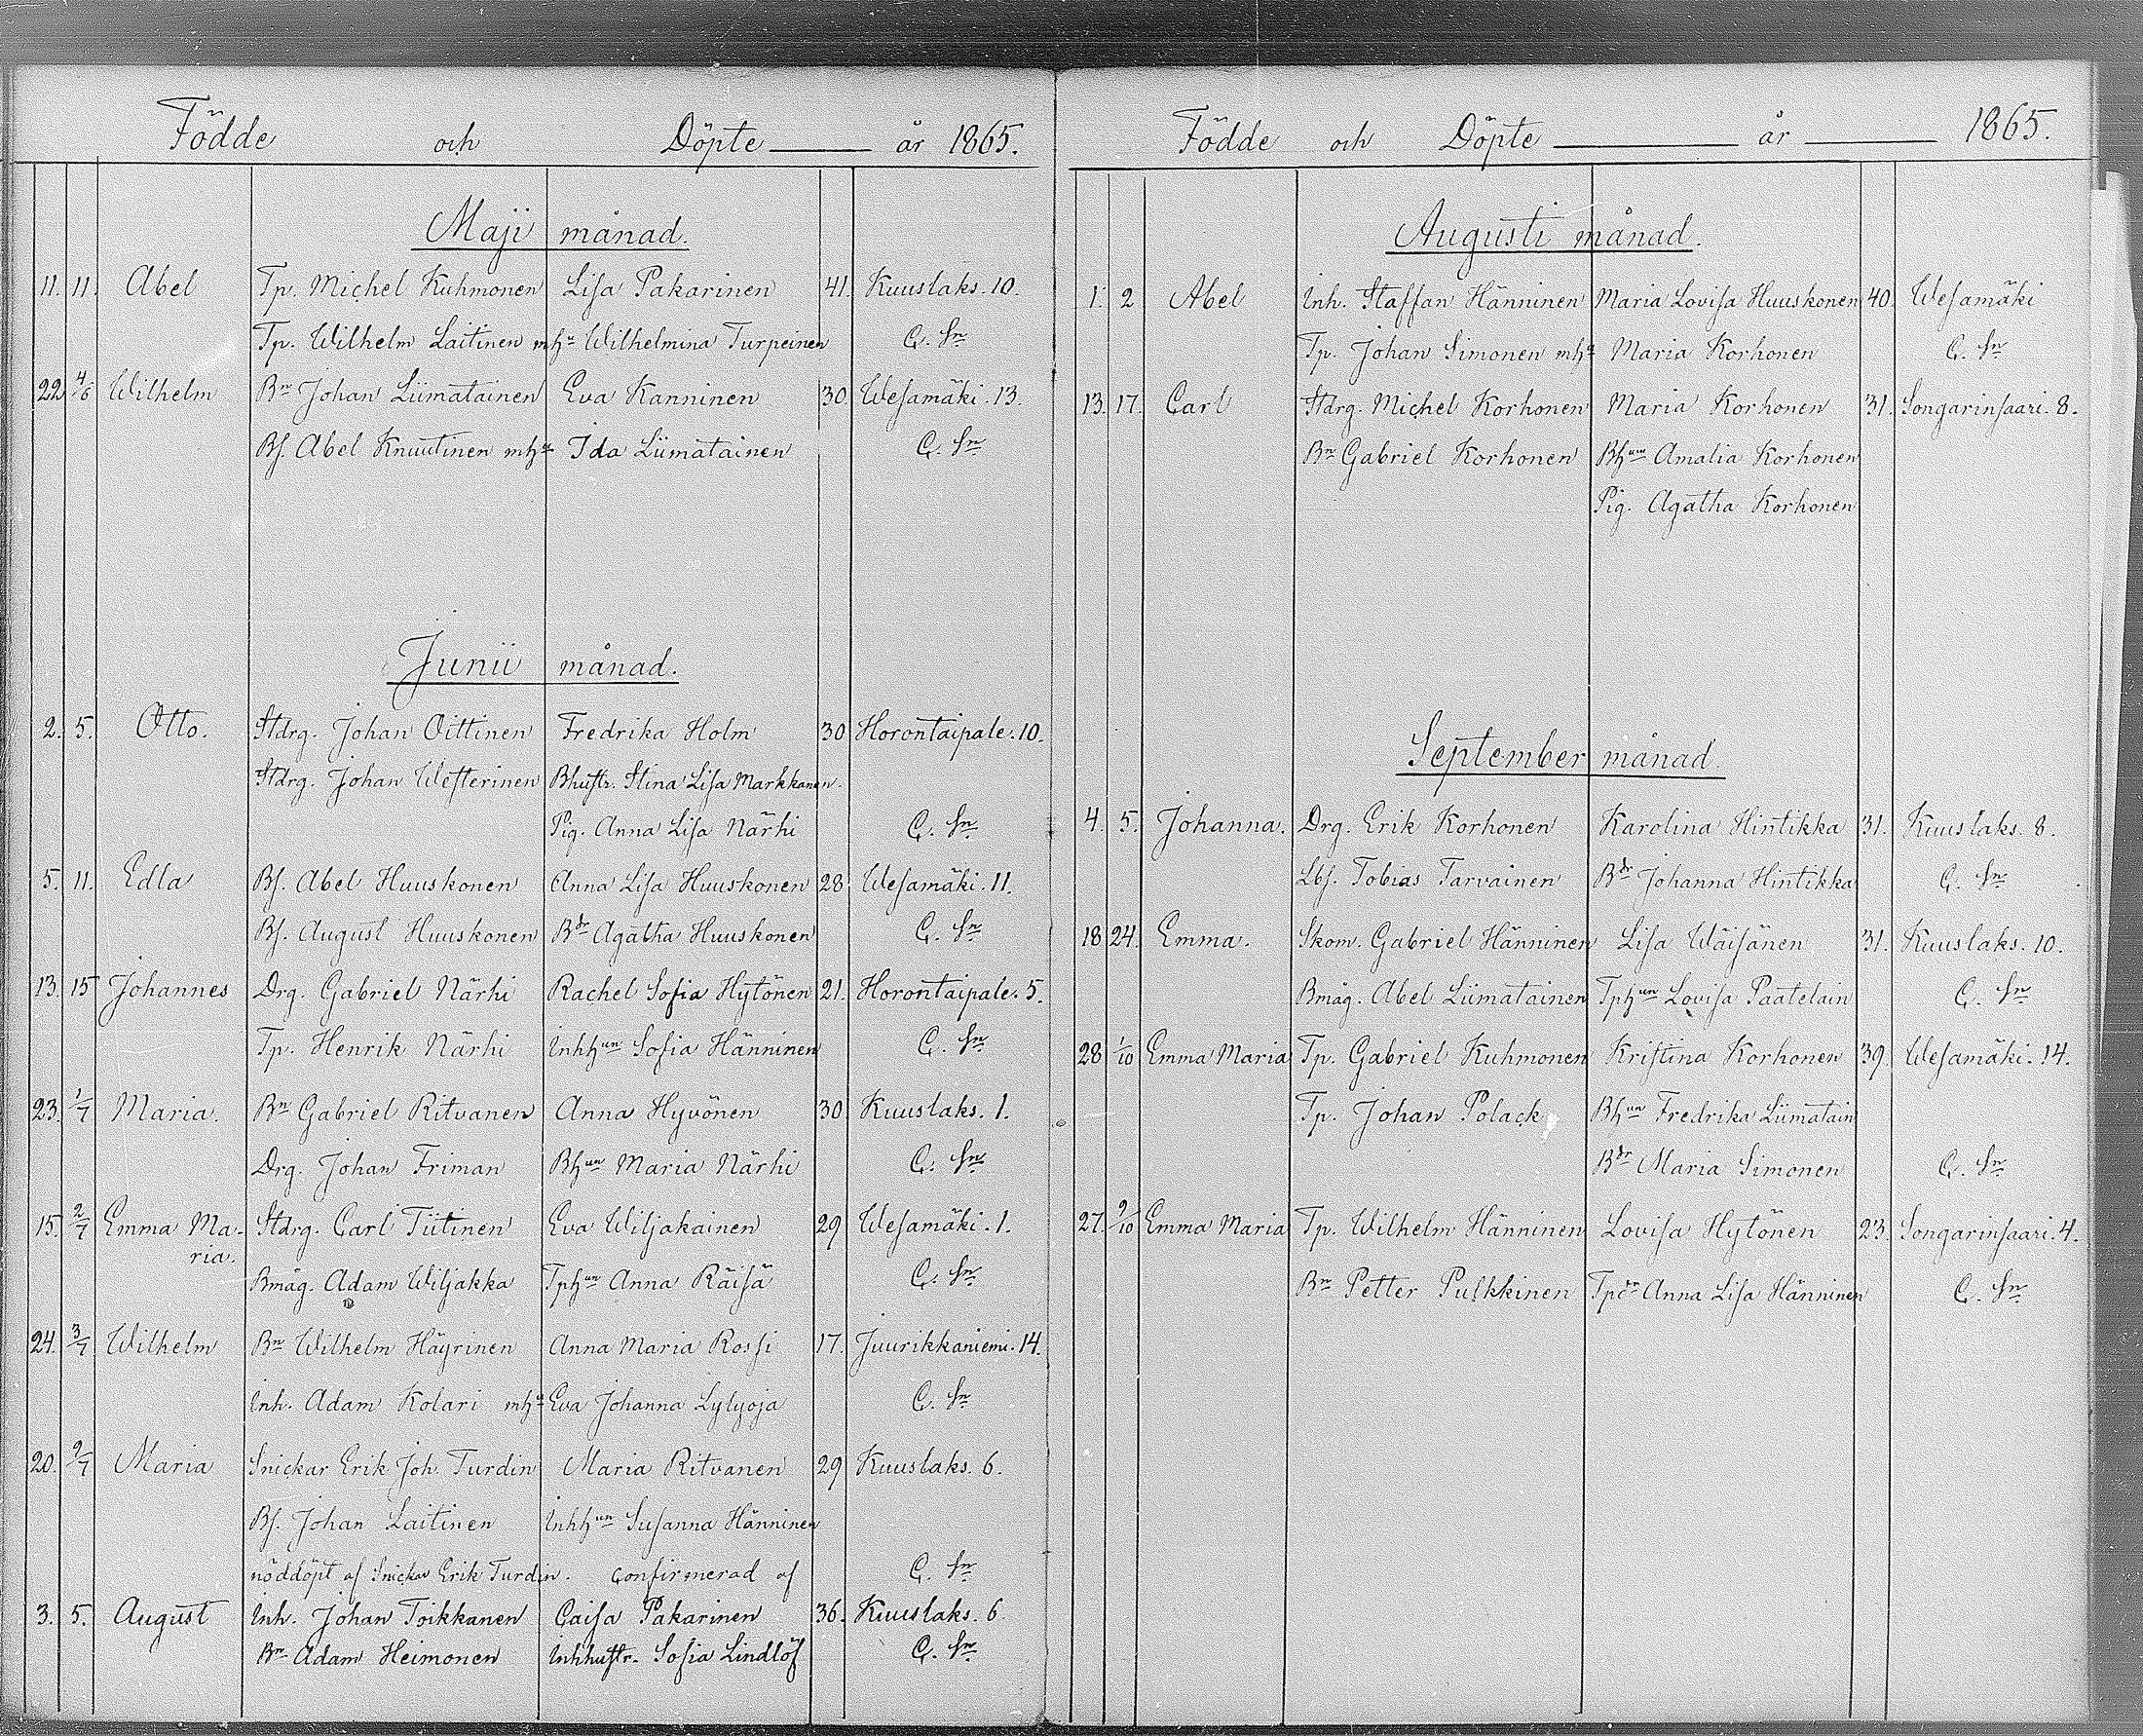 Födde och Döpte år 1865.
Maji månad.
11. 11. Abel Tp. Michel Kuhmonen Lisa Pakarinen 41. Kuuslaks. 10.
Tp. Wilhelm Laitinen mhu Wilhelmina Turpeinen C. Sn
22 4/6 Wilhelm Bn Johan Liimatainen Eva Kanninen 30. Wesamäki. 13.
Bs. Abel Knuutinen mhu Ida Liimatainen C. Sn
Junii månad.
2. 5. Otto. Stdrg. Johan Oittinen Fredrika Holm 30 Horontaipale. 10.
Stdrg. Johan Westerinen Bhustr. Stina Lisa Markkanen.
Pig. Anna Lisa Närhi C. Sn
5. 11. Edla Bs. Abel Huuskonen Anna Lisa Huuskonen 28 Wesamäki. 11.
Bs. August Huuskonen Bdr Agatha Huuskonen C. Sn
13. 15 Johannes Drg. Gabriel Närhi Rachel Sofia Hytönen 21. Horontaipale. 5.
Tp. Henrik Närhi Inhhun Sofia Hänninen C. Sn
23. 1/7 Maria. Bn Gabriel Ritvanen Anna Hyvönen 30 Kuuslaks. 1.
Drg. Johan Friman Bhun Maria Närhi C. Sn
15. 2/7 Emma Ma- Stdrg. Carl Tiitinen Eva Wiljakainen 29 Wesamäki. 1.
ria.
Bmåg. Adam Wiljakka Tphun Anna Räisä C. Sn
24. 3/7 Wilhelm Bn Wilhelm Häyrinen Anna Maria Rossi 17. Juurikkaniemi. 14.
Inh. Adam Kolari mhu Eva Johanna Lylyoja C. Sn
20. 9/7 Maria Snickar Erik Joh. Turdin Maria Ritvanen 29 Kuuslaks. 6.
Bs. Johan Laitinen Inhhun Susanna Hänninen
nöddöpt af Snickar Erik Turdin. Confirmerad af C. Sn
3. 5. August Inh. Johan Toikkanen Caisa Pakarinen 36. Kuuslaks. 6.
Bn Adam Heimonen Inhhustr. Sofia Lindlöf C. Sn
Födde och Döpte år 1865.
Augusti månad.
1. 2 Abel Inh. Staffan Hänninen Maria Lovisa Huuskonen 40. Wesamäki
Tp. Johan Simonen mhu Maria Korhonen C. Sn
13. 17. Carl Stdrg. Michel Korhonen Maria Korhonen 31. Songarinsaari. 8.
Bn Gabriel Korhonen Bhun Amalia Korhonen
Pig. Agatha Korhonen
September månad.
4. 5. Johanna. Drg. Erik Korhonen Karolina Hintikka 31. Kuuslaks. 8.
Lbs. Tobias Tarvainen Bdr Johanna Hintikka C. Sn
18 24. Emma. Skom. Gabriel Hänninen Lisa Wäisänen 31. Kuuslaks. 10.
Bmåg. Abel Liimatainen Tphun Lovisa Paatelain C. Sn
28 1/10 Emma Maria Tp. Gabriel Kuhmonen Kristina Korhonen 39. Wesamäki. 14.
Tp. Johan Polack Bhun Fredrika Liimatain
Bdr Maria Simonen C. Sn
27. 9/10 Emma Maria Tp. Wilhelm Hänninen Lovisa Hytönen 23. Songarinsaari. 4.
Bn Petter Pulkkinen Tpdr Anna Lisa Hänninen C. Sn